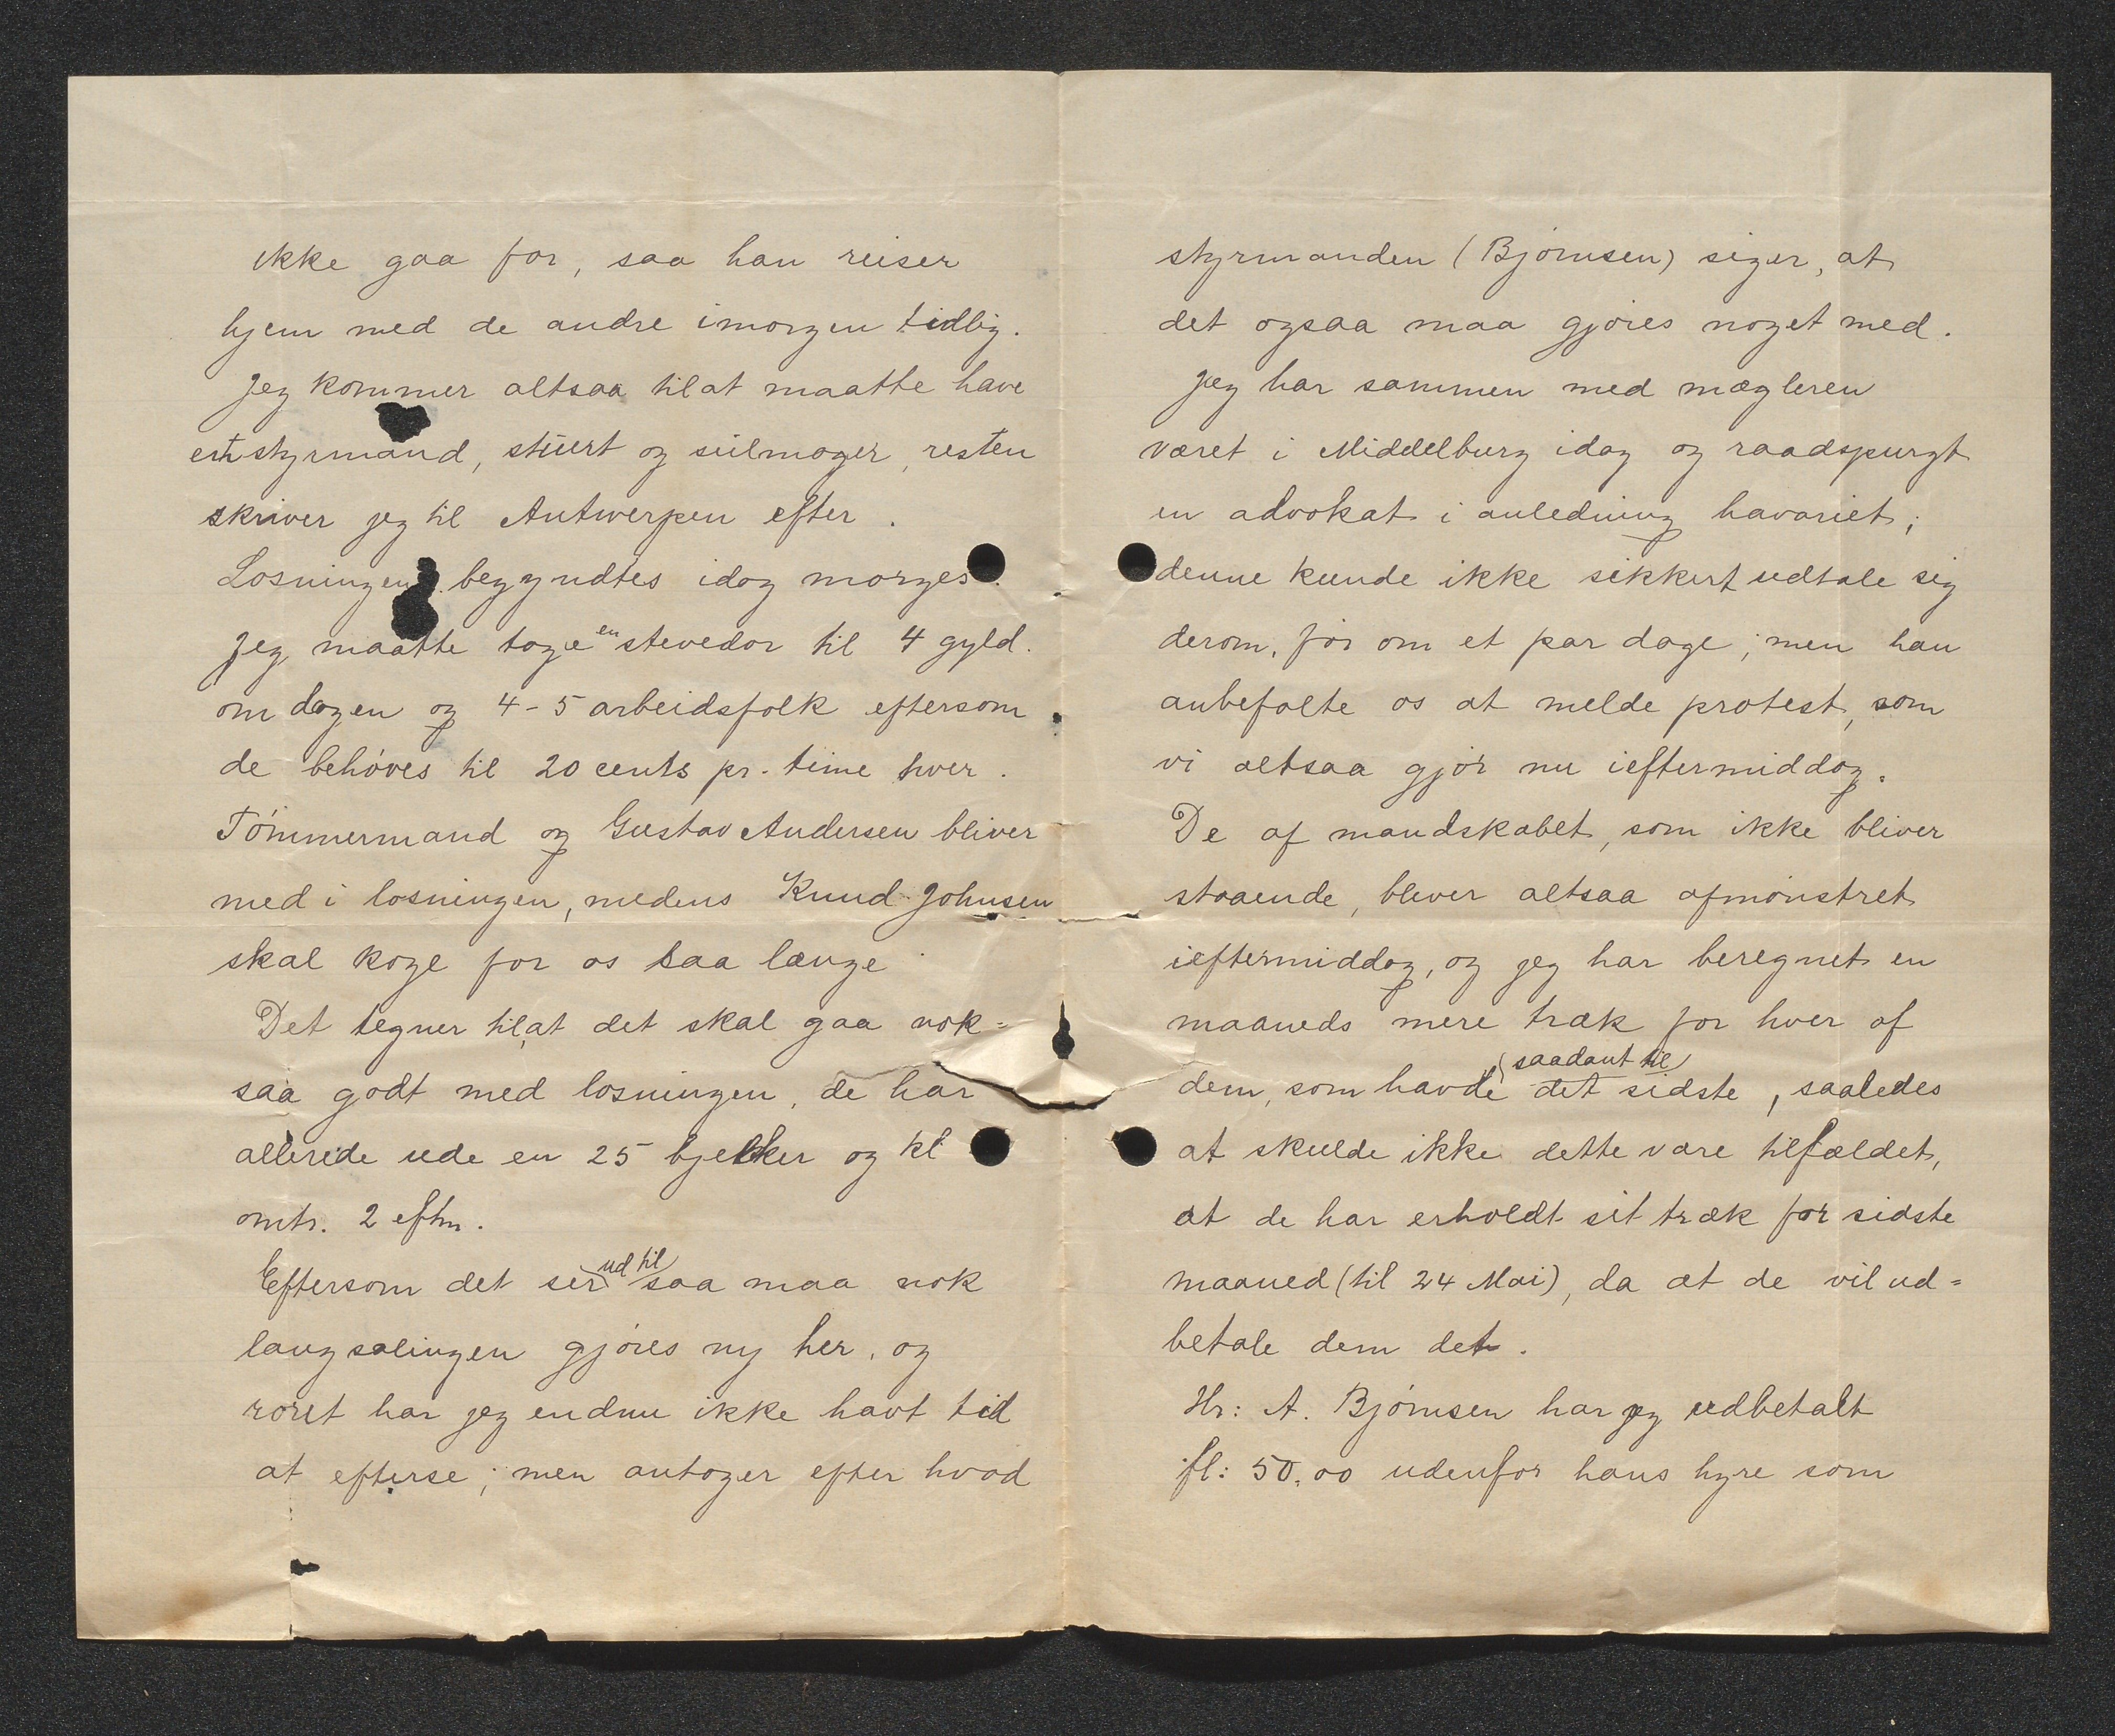 ikke gaa for, saa han reiser
hjem med de andre imorgen tidlig.
Jeg kommer altsaa til at maatte have
en styrmand, stuert og seilmager, resten
skriver jeg til Antwerpen efter.
Losningen begyndtes idag morges.
Jeg maatte tage en stevedor til 4 gyld.
om dagen og 4-5 arbeidsfolk eftersom
de behøves til 20 cents pr. time hver.
Tømmermand og Gustav Andersen bliver
med i losningen, medens Knud Johnsen
skal koge for os saa længe
Det tegner til, at det skal gaa nok=
saa godt med losningen, de har
allerede ude en 25 bjelker og kl
omtr. 2 eftm.
Eftersom det ser ud til saa maa nok
langsalingen gjøres ny her, og
roret har jeg endnu ikke havt tid
at efterse; men antager efter hvad
styrmanden (Bjørnsen) siger, at
det ogsaa maa gjøres noget med.
Jeg har sammen med mægleren
været i Middelburg idag og raadspurgt
en advokat i anledning havariet;
denne kunde ikke sikkert udtale sig
derom, før om et par dage; men han
anbefalte os at melde protest, som
vi altsaa gjør nu ieftermiddag.
De af mandskabet, som ikke bliver
staaende, blever altsaa afmønstret
ieftermiddag, og jeg har beregnet en
maaneds mere træk for hver af
dem, som havde saadant til det sidste, saaledes
at skulde ikke dette være tilfældet,
at de har erholdt sit træk for sidste
maaned (til 24 Mai), da at de vil ud=
betale dem det.
Hr: A. Bjørnsen har jeg udbetalt
fl: 50,00 udenfor hans hyre som